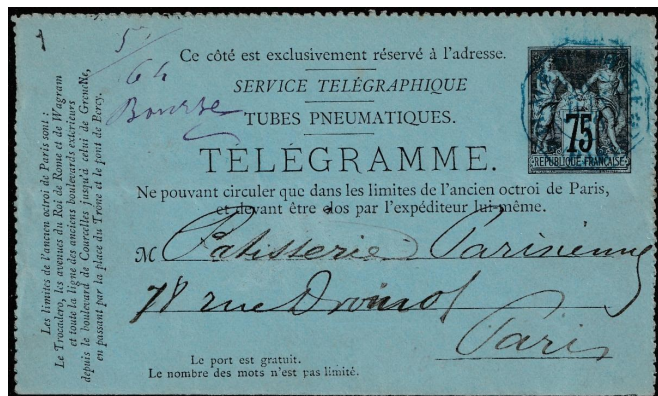 5
64
Bourse
Ce côté est exclusivement réservé à l'adresse.
SERVICE TÉLÉGRAPHIQUE
TUBES PNEUMATIQUES.
TÉLÉGRAMME.
Ne pouvant circuler que dans les limites de l'ancien octroi de Paris,
et devant être clos par l'expéditeur lui-même.
M Patisserie Parisienne
78 rue Drouot
Paris
Le port est gratuit.
Le nombre des mots n'est pas limité.
75
RÉPUBLIQUE FRANÇAISE
Les limites de l'ancien octroi de Paris sont :
Le Trocadero, les avenues du Roi de Rome et de Wagram
et toute la ligne des anciens boulevards extérieurs
depuis le boulevard de Courcelles jusqu'à celui de Grenelle,
en passant par la place du Trône et le pont de Bercy.